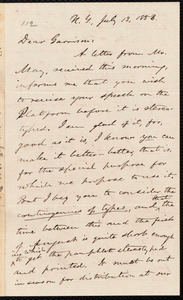 112
N. Y. July 13, 1858.
Dear Garrison:
A letter from Mr.
May, received this morning,
informs me that you wish
to revise your speech on the
Platform before it is stereo-
typed. I am glad of it, for,
good as it is, I know you can
make it better—better, that is,
for the special purpose for
which we propose to use it.
But I beg you to consider the
contingencies of types, and, that the
time between this and the first
of August is quite short enough
in which to get the pamphlet stereotyped
and printed. It must be out
in season for distribution at our